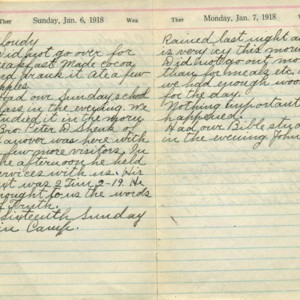 THER Sunday, Jan. 6, 1918 THER
loudy
Did not go over for
eakfast Made Cocoa,
nd drank it Ate a few
pples.
Had our Sunday school
lass in the evening. We
tudied it in the morn
Bro. Peter D. Shenk of
anover was here with
few more visitors. In
he afternoon he held
ervices with us. His
xt was 2 Tim 2-19. He
rought to us the words
f Truth.
Sixteenth Sunday
in Camp.
Monday, Jan. 7, 1918
Rained last night a
is very icy this mou
Did not go out mo
than for meals etc.
we had enough woo
for the day.
Nothing important
happened.
Had our Bible stud
in the evening John